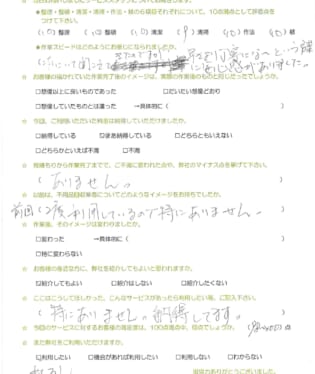 ★整理・整頓・清潔・清掃・作法・躾の5項目それぞれについて、10点満点として評価点を
つけて下さい。
(10)整理 (10)整頓 (10)清潔 (9)清掃 (10)作法 (10)躾
★作業スピードはどのようにお感じになられましたか。
☆ お客様の描かれていた作業完了後のイメージは、実際の作業後のものと同じだったでしょうか。
□想像以上に良いものであった □だいたい想像どおり
□想像していたものとは違った →具体的に( )
☆ 今回、ご相談いただいた料金は納得していただけましたか。
□納得している ☑まあ納得している □どちらともいえない
□どちらかといえば不満 □不満
☆ 見積もりから作業完了までで、ご不満に思われた点や、弊社のマイナス点を挙げて下さい。
(ありません。 )
☆ 以前は、不用品回収業者についてどのようなイメージをお持ちでしたか。
前回( 利用しているので特にありません。 )
☆ 作業後、そのイメージは変わりましたか。
□変わった →具体的に( )
□特に変わらない
☆ お客様の身近な方に、弊社を紹介してもよいと思われますか。
☑紹介してもよい □紹介はしない □紹介したくない
☆ ここはこうしてほしかった、こんなサービスがあったら利用したい等、ご記入下さい。
(特にありません。納得してます。 )
☆ 今回のサービスに対するお客様の満足度は、100点満点中、何点でしょうか。( )点
☆ また弊社をご利用いただけますか。
☑利用したい □機会があれば利用したい □利用しない □わからない
ご協力ありがとうございました。